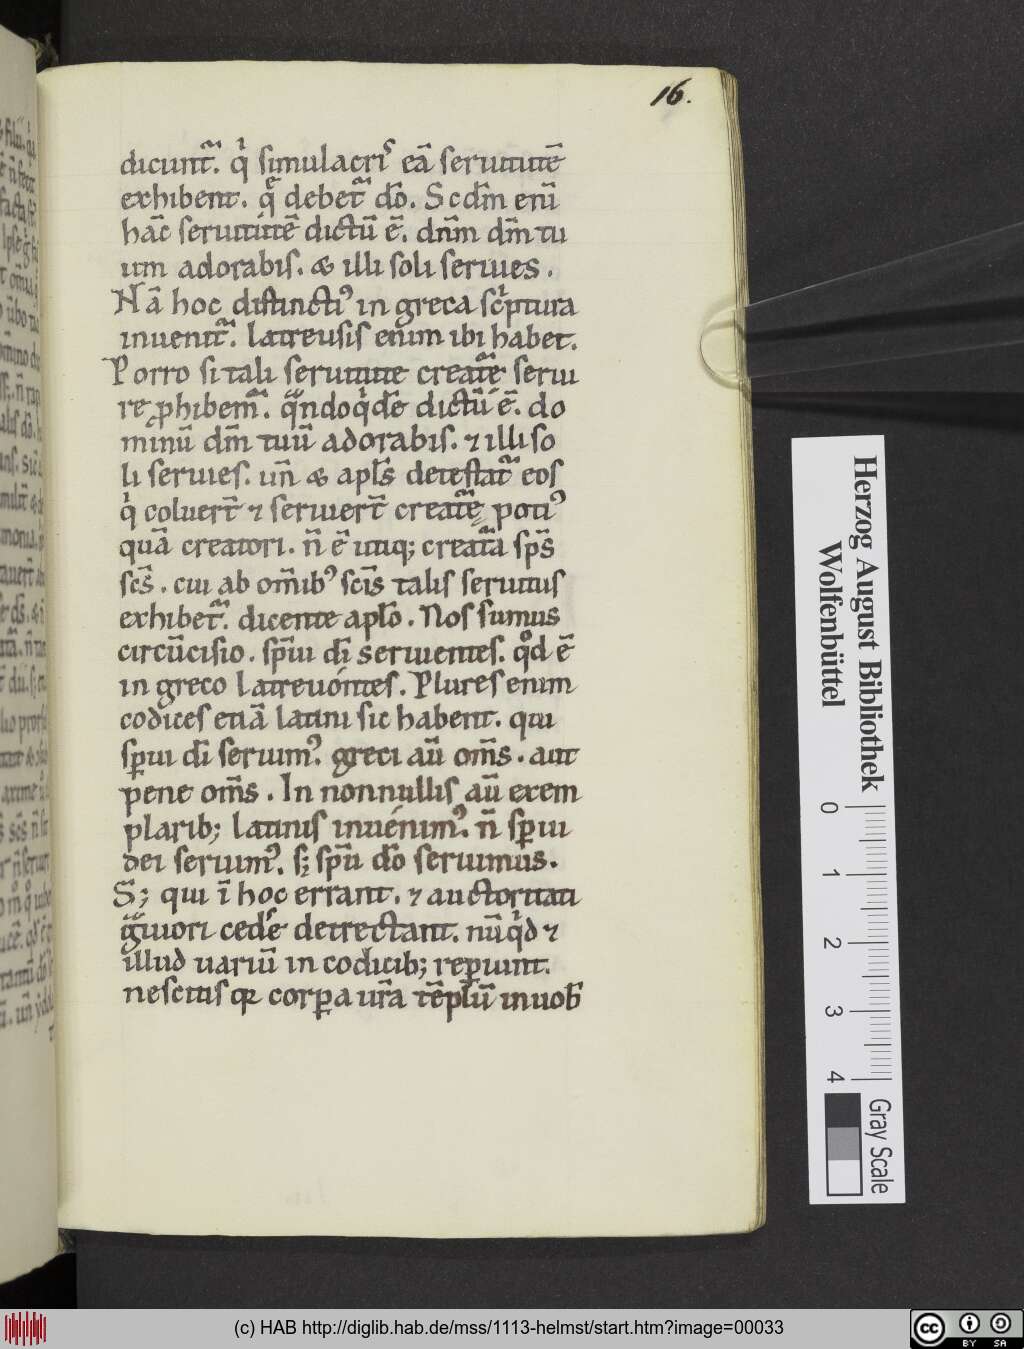 16.
dicunt᷑. qͥ simulacriſ eā seruitutē
exhibent. quę debet᷑ dō. Scdm̄ enī
hāc seruitutē dictū ē. dnm̄ dm̄ tu
um adorabis. & illi soli seruies.
Nā hoc distinctiꝰ in greca scͥptura
inuenit᷑. latreusis enim ibi habet.
Porro si tali seruitute creatę serui
re ꝓhibem᷑. qᷓndoqͥdē dictū ē. do
minū dm̄ tuū adorabis. ⁊ illi so
li seruies. un̄ & apl̄s detestat᷑ eos
qͥ coluer̄t ⁊ seruier̄t creatᷓę potiꝰ
quā creatori. n̄ ē utiq; creatᷓa sp̄s
sc̄s. cui ab om̄ibꝰ scīs talis seruitus
exhibet᷑. dicente apl̄o. Nos sumus
circūcisio. sp̄ui dī seruientes. qͦd ē
in greco latreuóntes. Plures enim
codices etiā latini sic habent. qui
sp̄ui dī seruimꝰ. greci aū om̄s. aut
pene om̄s. In nonnullis aū exem
plarib; latinis inuénimꝰ. n̄ sp̄ui
dei seruimꝰ. s; sp̄u dō seruimus.
S; qui ī hoc errant. ⁊ auctoritati
gᷓuiori cedēe detrectant. nūqͥd ⁊
illud uariū in codicib; reꝑiunt.
nescitis qꝛ corꝑa ur̄a tēplū in uob̄
Herzog August Bibliothek
Wolfenbüttel
0 1 2 3 4
Gray Scale
(c) HAB http://diglib.hab.de/mss/1113-helmst/start.htm?image=00033
cc BY SA